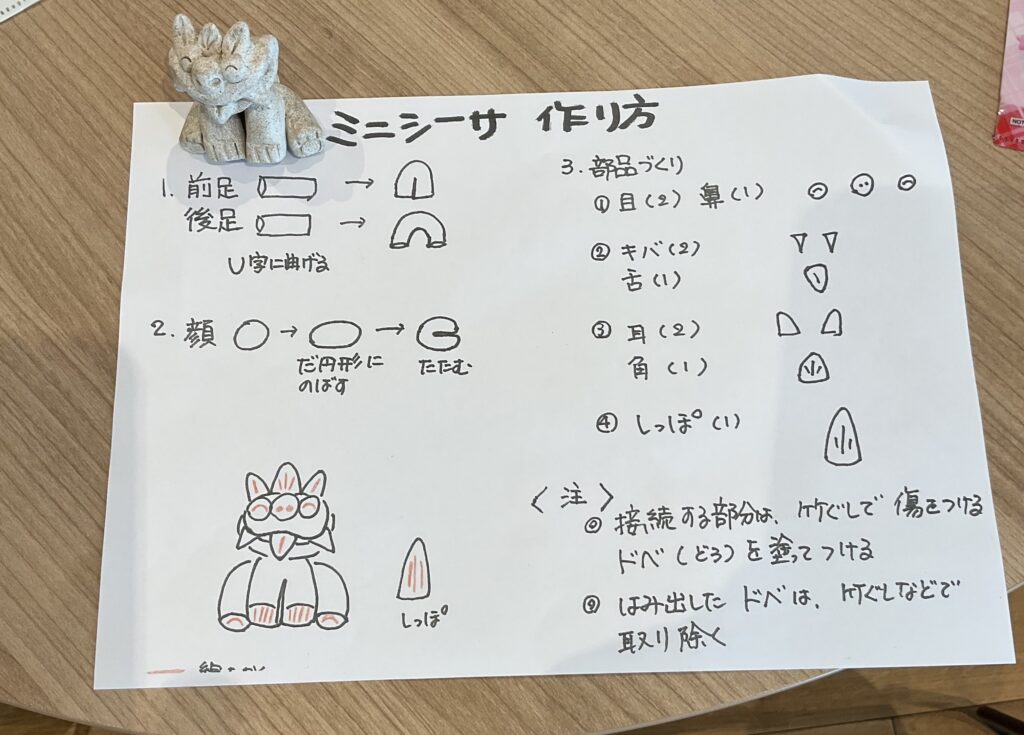 ミニシーサ 作り方
1. 前足 →
後足 →
U字に曲げる
2. 顔 → →
だ円形に
のばす
たたむ
しっぽ
3. 部品づくり
① 目(2) 鼻(1)
② キバ(2)
舌(1)
③ 耳(2)
角(1)
④ しっぽ(1)
〈注〉
◎ 接続する部分は、竹ぐしで傷をつける
ドベ(どろ)を塗ってつける
◎ はみ出したドベは、竹ぐしなどで
取り除く
NOT